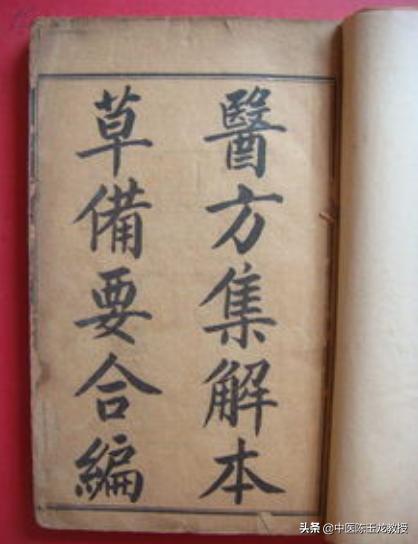 醫方集解本
草備要合編
头条 @中医陈玉龙教授